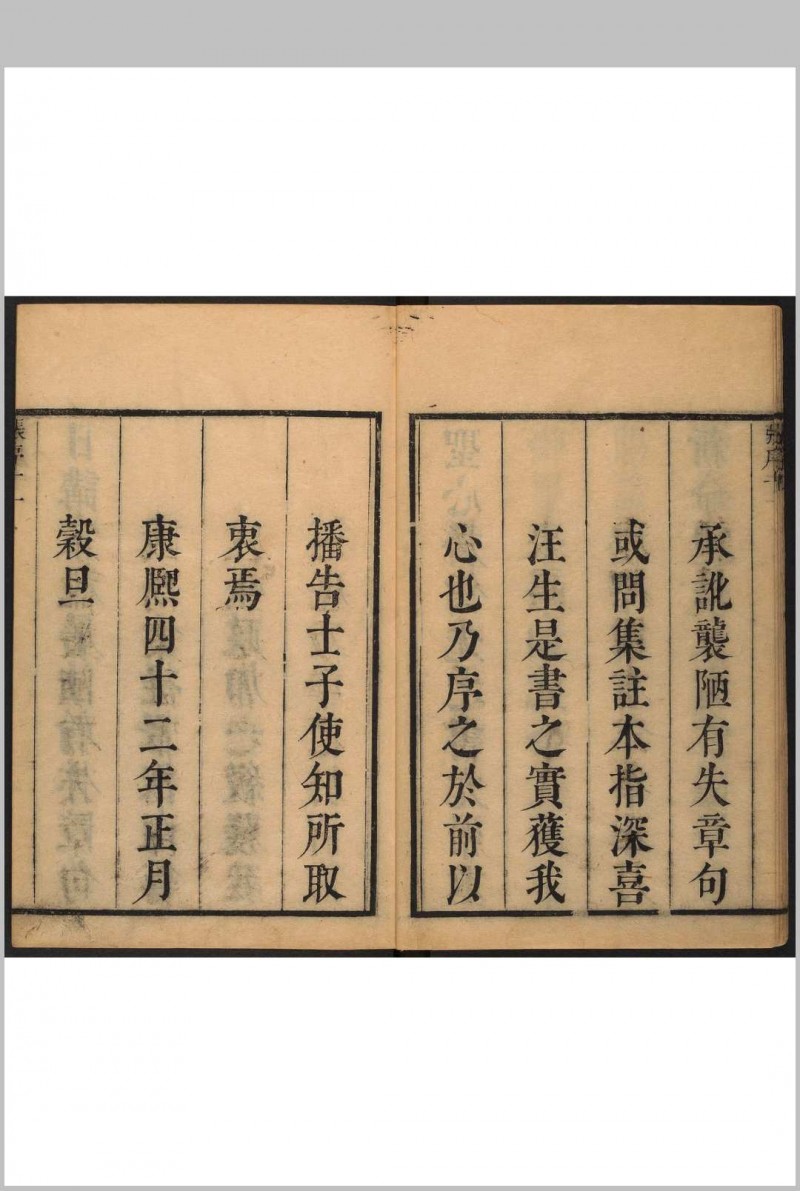 承訛襲陋有失章句
或問集註本指深喜
汪生是書之實獲我
心也乃序之於前以
播告士子使知所取
衷焉
康熈四十二年正月
穀旦